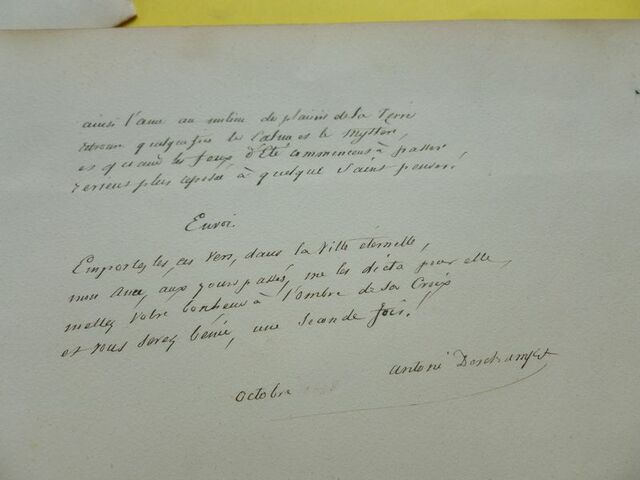 ainsi l'ame au milieu de plaisirs de la Terre
retrouve quelquefois le Calme et le mystère,
et quand les feux d'Eté commencent à passer
revient plus reposée à quelque saint penser!
Envoi.
Emportez les, ces vers, dans la ville éternelle,
mon ame, aux jours passés, me les dicta pour elle,
mettez votre bonheur à l'ombre de sa Croix
et vous serez bénie, une seconde fois!
Antoni Deschamps
Octobre